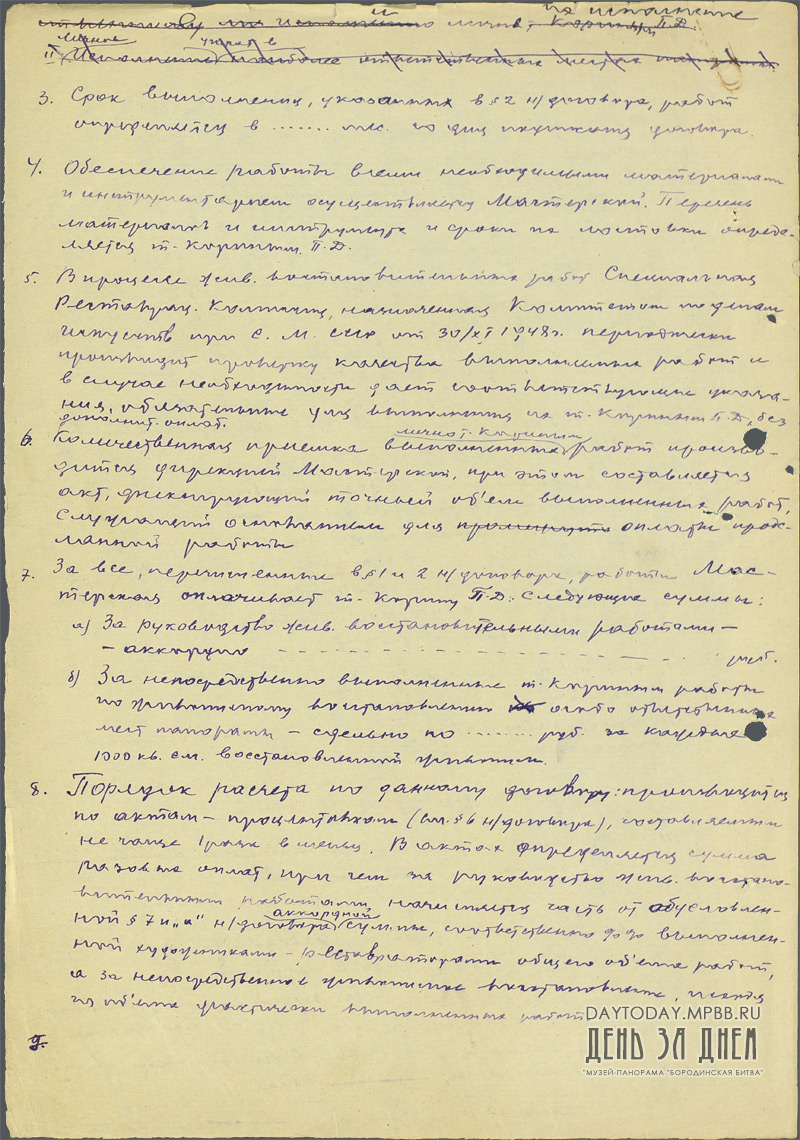 на исполнение
лично, Кориным П.Д.
Личное участ. в
II) Исполнение наиболее ответственных мест
3. Срок выполнения, указанных в § 2 н/договора, работ
определяется в ....... мес. со дня подписания договора.
4. Обеспечение работы всеми необходимыми материалами
и инструментарием осуществляется Мастерской. Перечень
материалов и инструмента и сроки их поставки опреде-
ляется т. Кориным П.Д.
5. В процессе жив. восстановительных работ Специальная
Реставрац. Комиссия, назначенная Комитетом по делам
искусств при С. М. СССР от 30/XI 1948 г. периодически
производит проверку качества выполняемых работ и
в случае необходимости дает соответствующие указа-
ния, обязательные для выполнения их т. Кориным П.Д, без
дополнит. оплат.
лично т. Кориным
6. Количественная приемка выполненных работ произво-
дится дирекцией Мастерской, при этом составляется
акт, фиксирующий точный об'ем выполненных работ,
служащий основанием для оплаты проде-
ланной работы
7. За все, перечисленные в § 1 и 2 н/договора, работы Мас-
терская оплачивает т. Корину П.Д. следующие суммы:
а) За руководство жив. восстановительными работами -
- аккордно - - - - - - - - - руб.
б) За непосредственно выполненные т. Кориным работы
по живописному восстановлению особо ответственных
мест панорамы - сдельно по ....... руб. за каждые
1000 кв. см. восстановленной живописи.
8. Порядок расчета по данному договору: производится
по актам - процентовкам (см. § 6 н/договора), составляемым
не чаще 1 раза в месяц. В актах определяется сумма
разовых оплат, при чем за руководство жив. восстано-
вительными работами начисляется часть от обусловлен-
аккордной
ной § 7 п „а" н/договора суммы, соответственно до выполнен-
ной художниками - реставраторами общего об'ема работ,
а за непосредственное живописное восстановление, исходя
из об'ема фактически выполненных работ
9.
DAYTODAY.MPBB.RU
ДЕНЬ ЗА ДНЕМ
"МУЗЕЙ-ПАНОРАМА "БОРОДИНСКАЯ БИТВА"